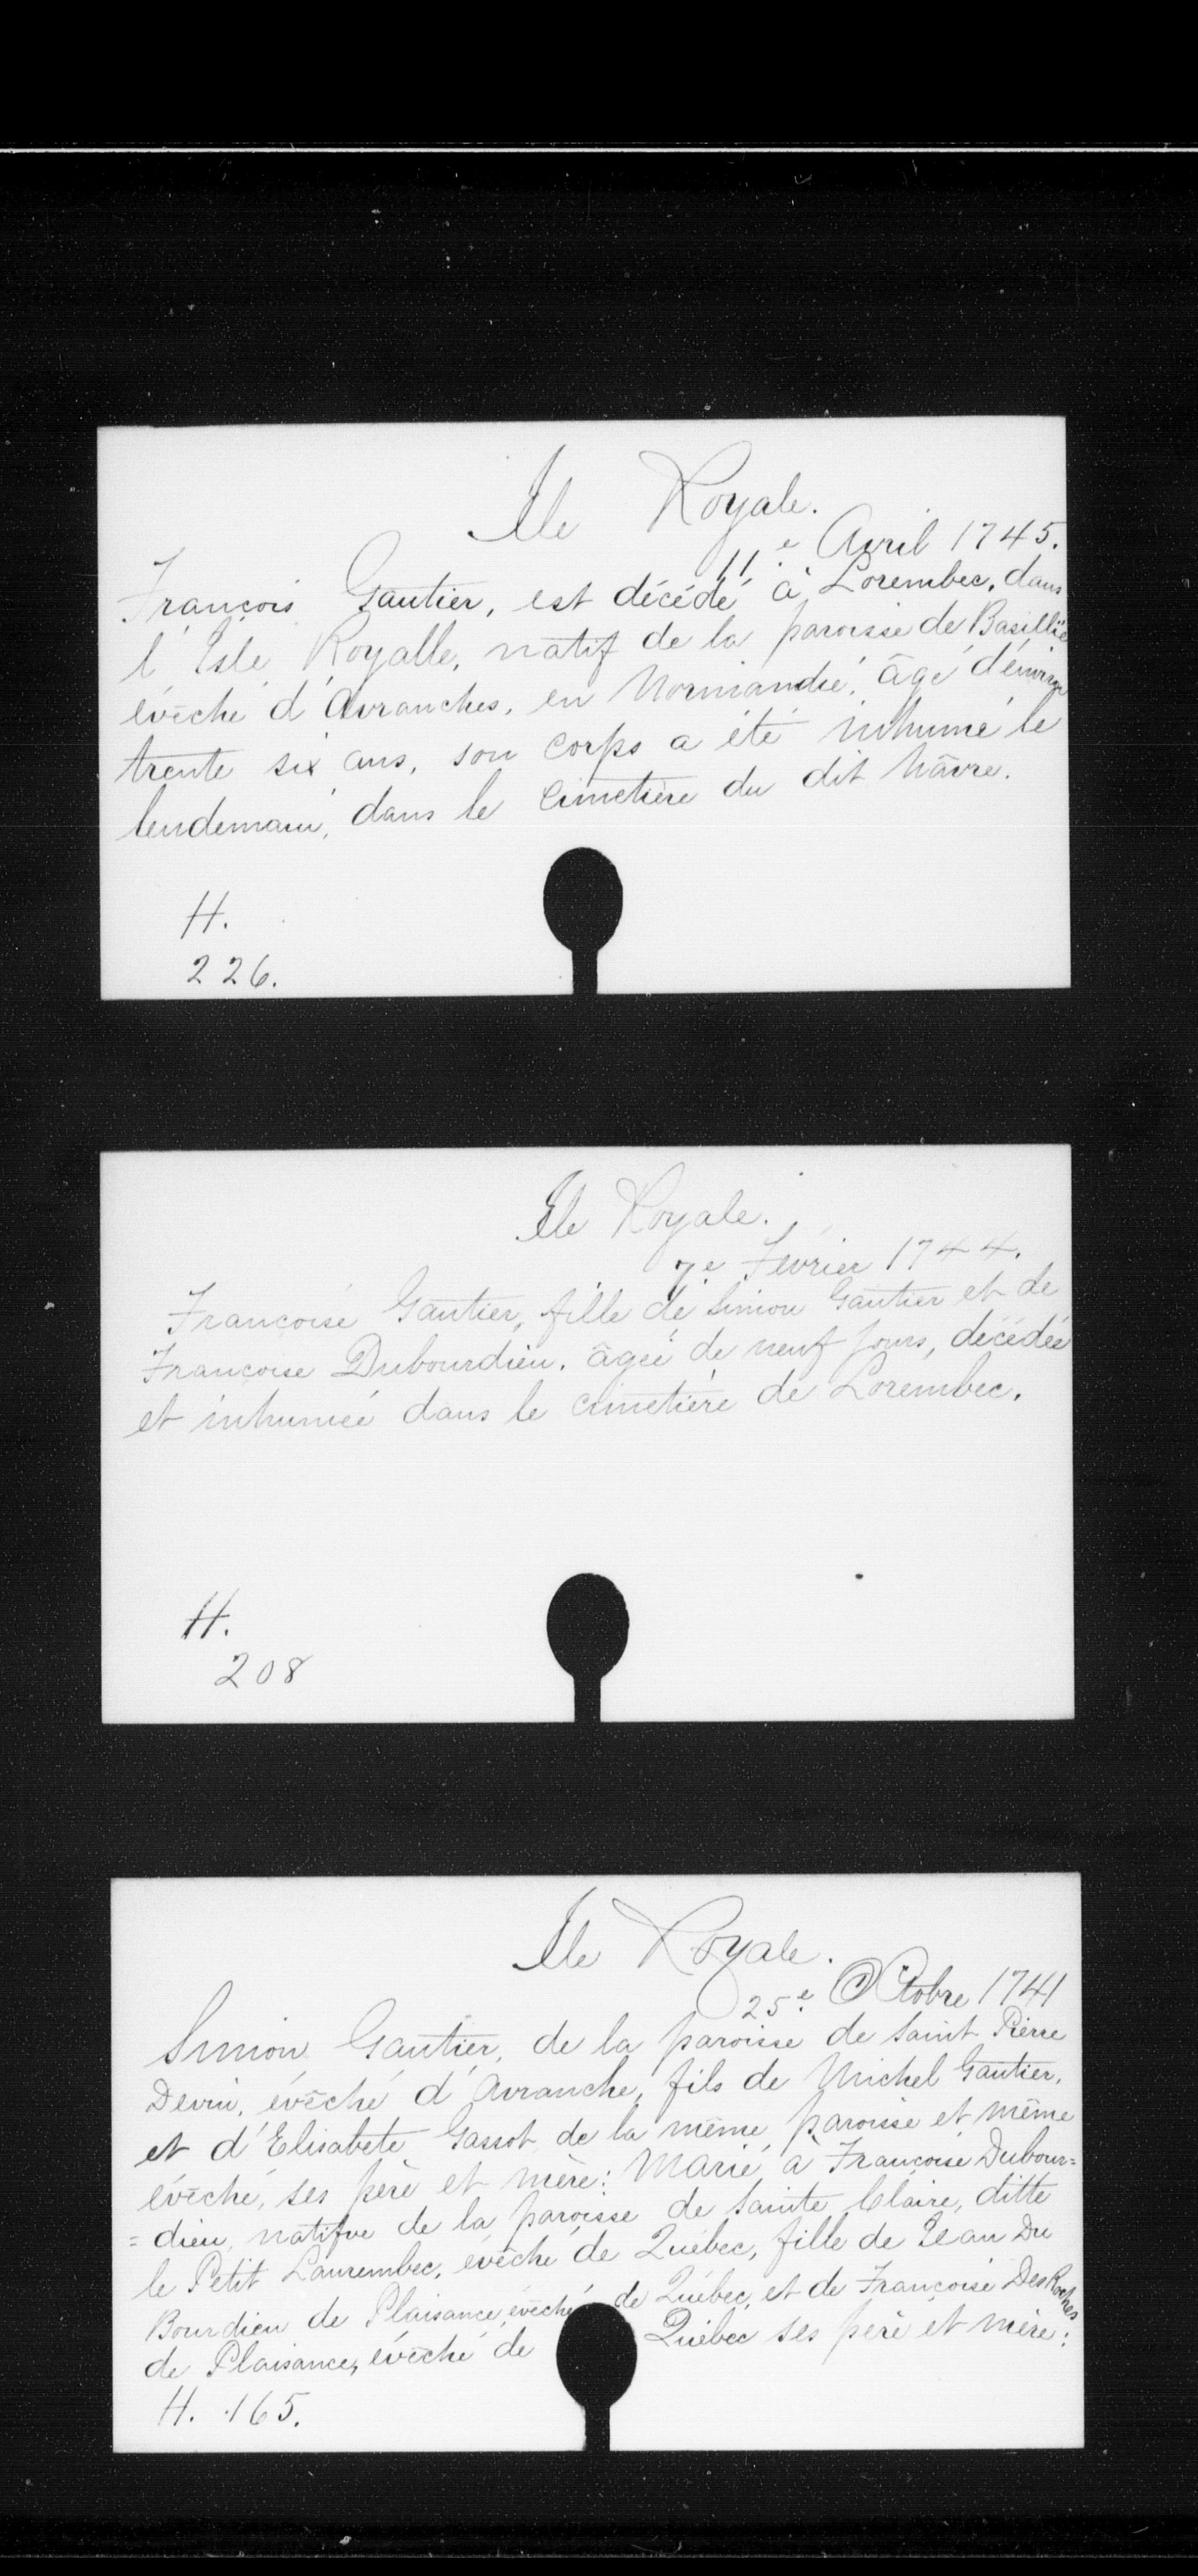 Ile Royale.
11.e Avril 1745.
François Gautier, est décédé à Lorembec, dans
l'Isle Royalle, natif de la paroisse de Basillïe
évêché d'Avranches, en Normandie, âgé d'environ
trente six ans, son corps a été inhumé le
lendemain, dans le Cimetière du dit hâvre.
H.
226.
Ile Royale.
7.e Février 1744.
Françoise Gautier, fille de Simon Gautier et de
Françoise Dubourdieu, âgée de neuf jours, décédée
et inhumée dans le cimetière de Lorembec.
H.
208
Ile Royale.
25.e Octobre 1741
Simon Gautier, de la paroisse de Saint Pierre
Devin, évêché d'Avranche, fils de Michel Gautier,
et d'Elisabete Gassot de la même paroisse et même
évêché, ses père et mère: Marié à Françoise Dubour=
=dieu, natifve de la paroisse de Sainte Claire, ditte
le Petit Laurembec, evêché de Québec, fille de Jean Du
Bourdieu de Plaisance, évêché de Québec, et de Françoise DesRoches
de Plaisance, évêché de Québec ses père et mère:
H. 165.